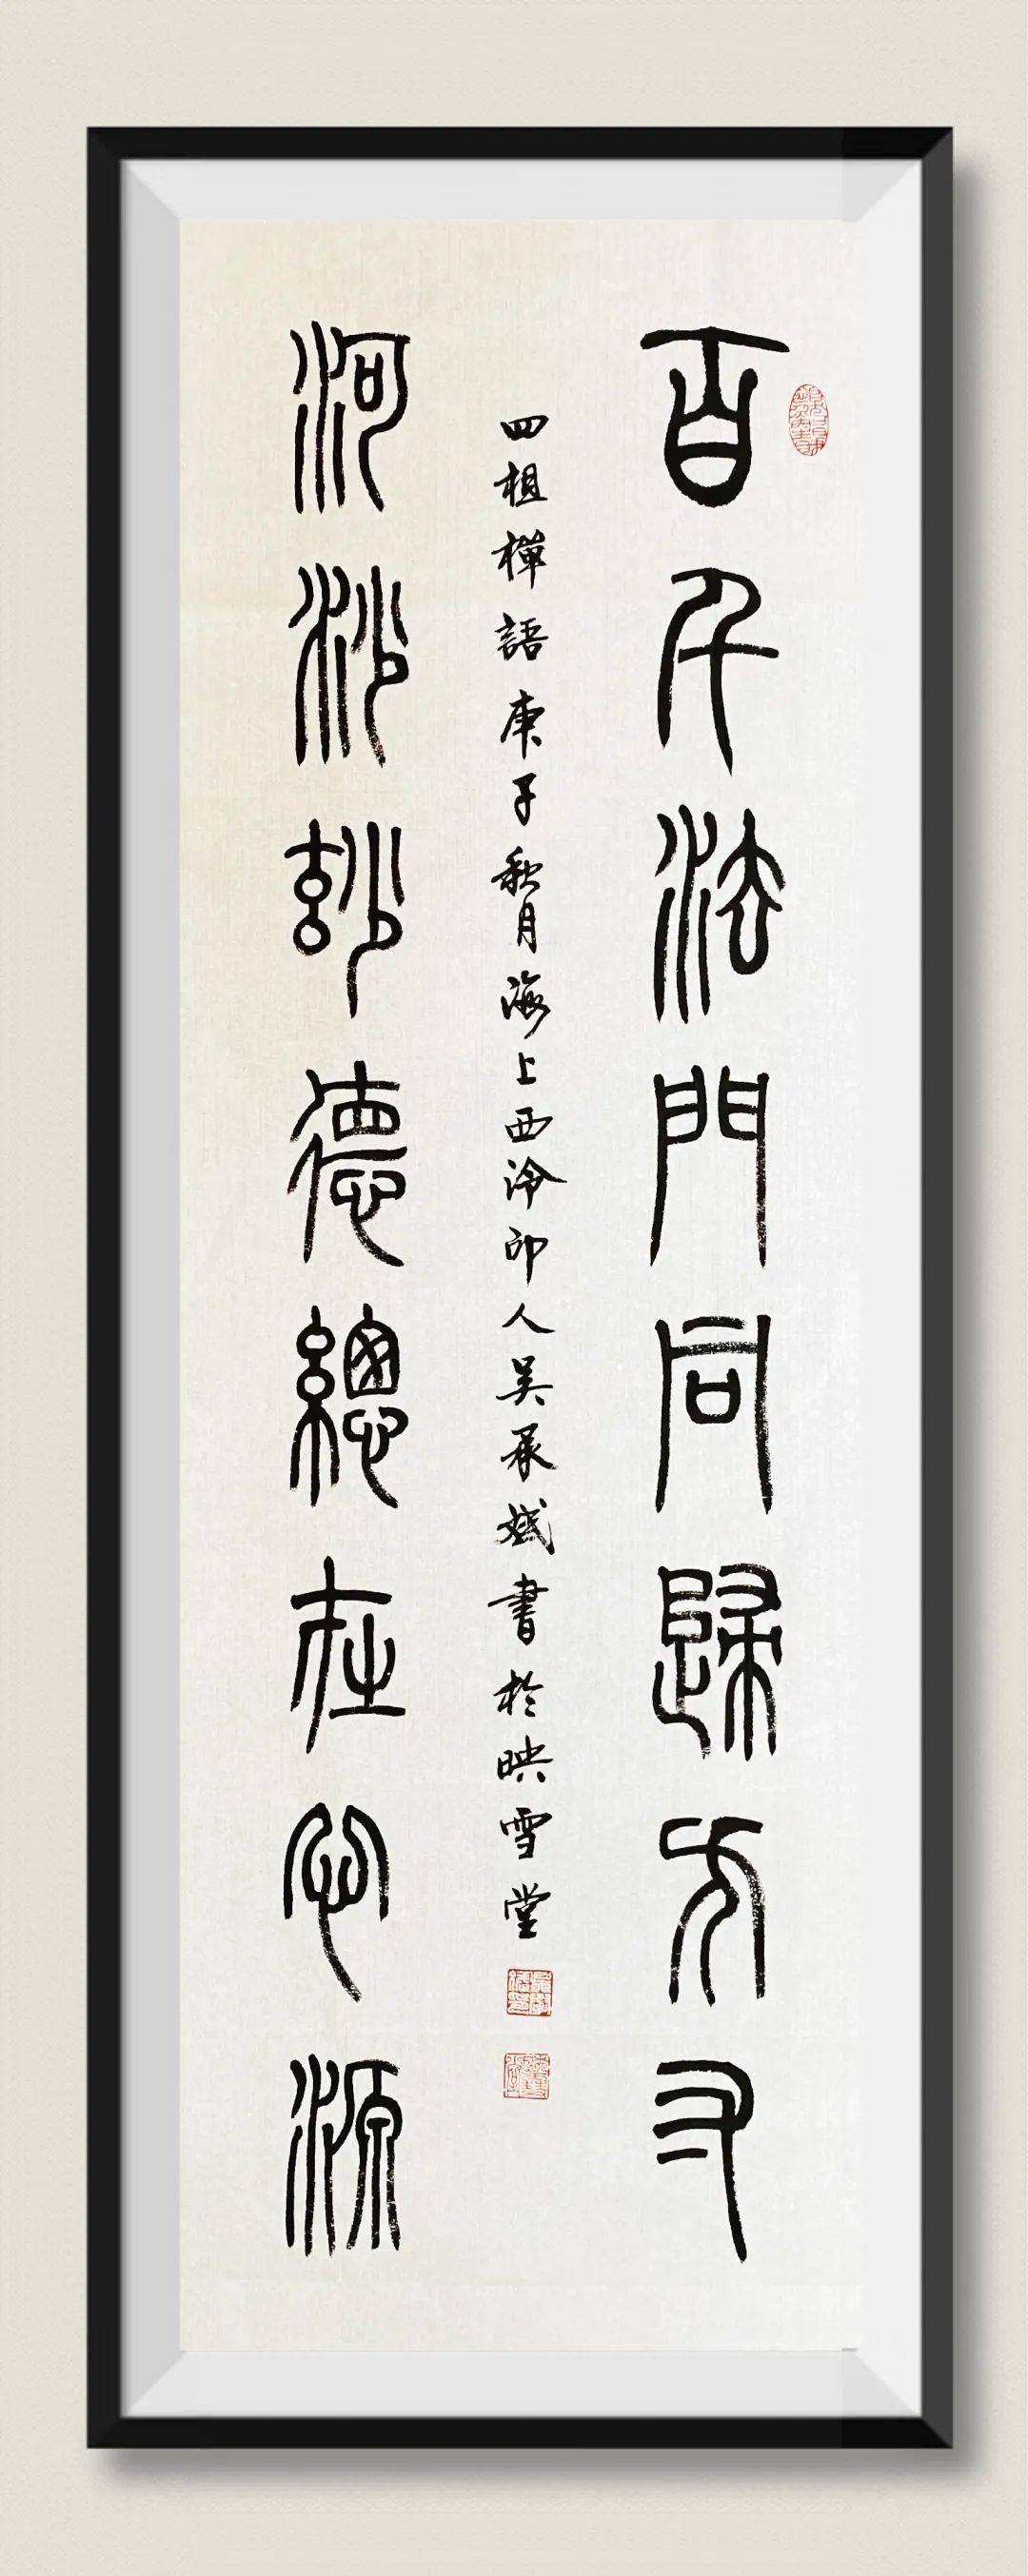 百千法門同歸方寸
河沙玅德總在心源
四祖禪語庚子秋月海上西泠印人吳承斌書於映雪堂